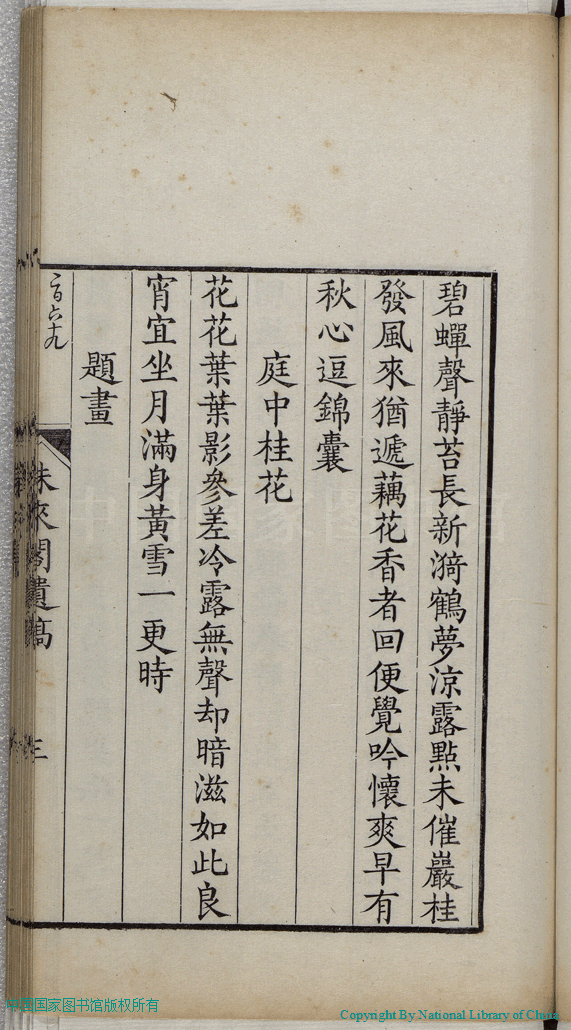 碧蟬聲靜苔長新漪鶴夢涼露點未催巖桂
發風來猶遞藕花香者回便覺吟懷爽早有
秋心逗錦囊
庭中桂花
花花葉葉影參差冷露無聲却暗滋如此良
宵宜坐月滿身黃雪一更時
題畫
閣遺稿
三
中国国家图书馆版权所有
Copyright By National Library of China